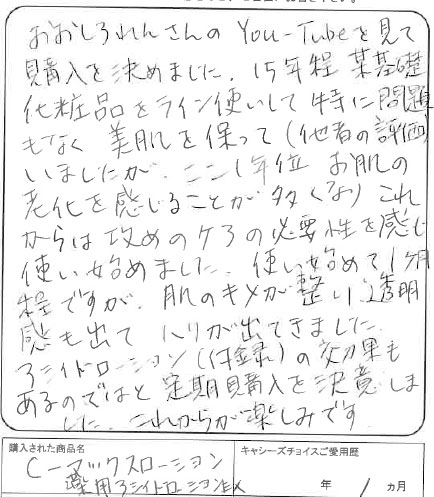 おおしろれんさんの You-Tubeを見て
購入を決めました。15年程 某基礎
化粧品をライン使いして特に問題
もなく 美肌を保って(他者の評価)
いましたが、ここ1年位 お肌の
老化を感じることが多くなり これ
からは攻めのケアの必要性を感じ
使い始めました。使い始めて1ヶ月
程ですが、肌のキメが整い透明
感も出て ハリが出てきました。
3シイドローション(付録)の効果も
あるのではと定期購入を決意しま
した。これからが楽しみです
購入された商品名
C-マックスローション
薬用3シイドローションEX
キャシーズチョイスご愛用歴
年 1ヵ月